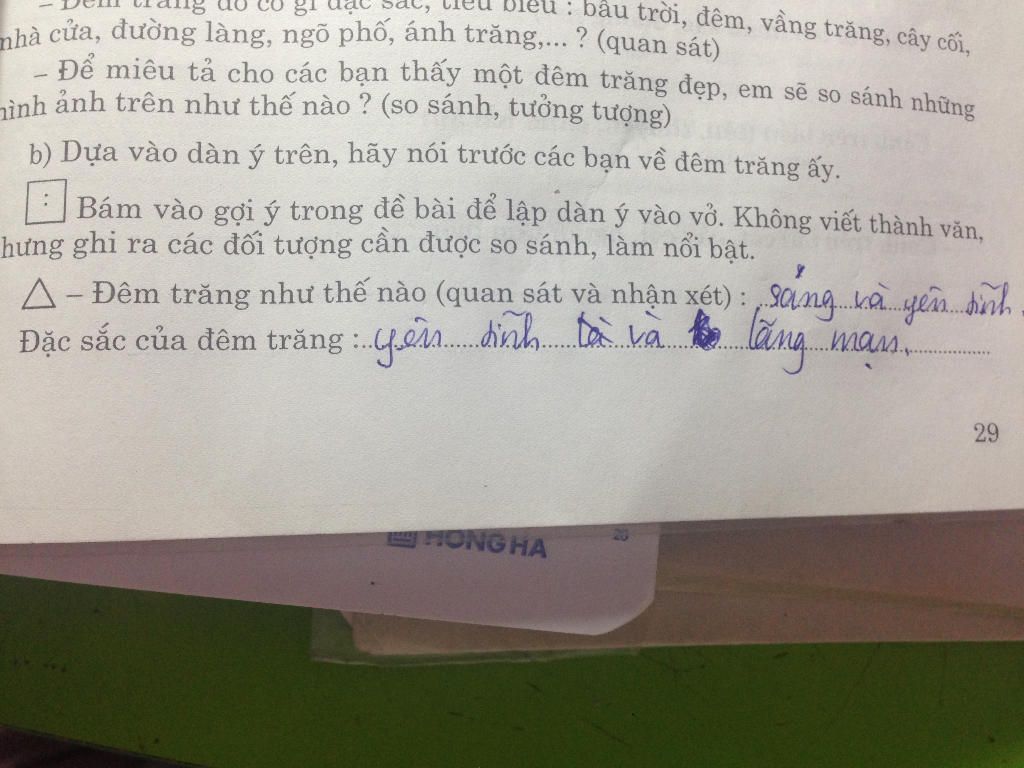 – Đêm trăng đó có gì đặc sắc, tiêu biểu : bầu trời, đêm, vầng trăng, cây cối,
nhà cửa, đường làng, ngõ phố, ánh trăng,... ? (quan sát)
– Để miêu tả cho các bạn thấy một đêm trăng đẹp, em sẽ so sánh những
hình ảnh trên như thế nào ? (so sánh, tưởng tượng)
b) Dựa vào dàn ý trên, hãy nói trước các bạn về đêm trăng ấy.
: Bám vào gợi ý trong đề bài để lập dàn ý vào vở. Không viết thành văn,
hưng ghi ra các đối tượng cần được so sánh, làm nổi bật.
– Đêm trăng như thế nào (quan sát và nhận xét) : sáng và yên tĩnh.
Đặc sắc của đêm trăng : yên tĩnh và lãng mạn.
29
HONG HA
26